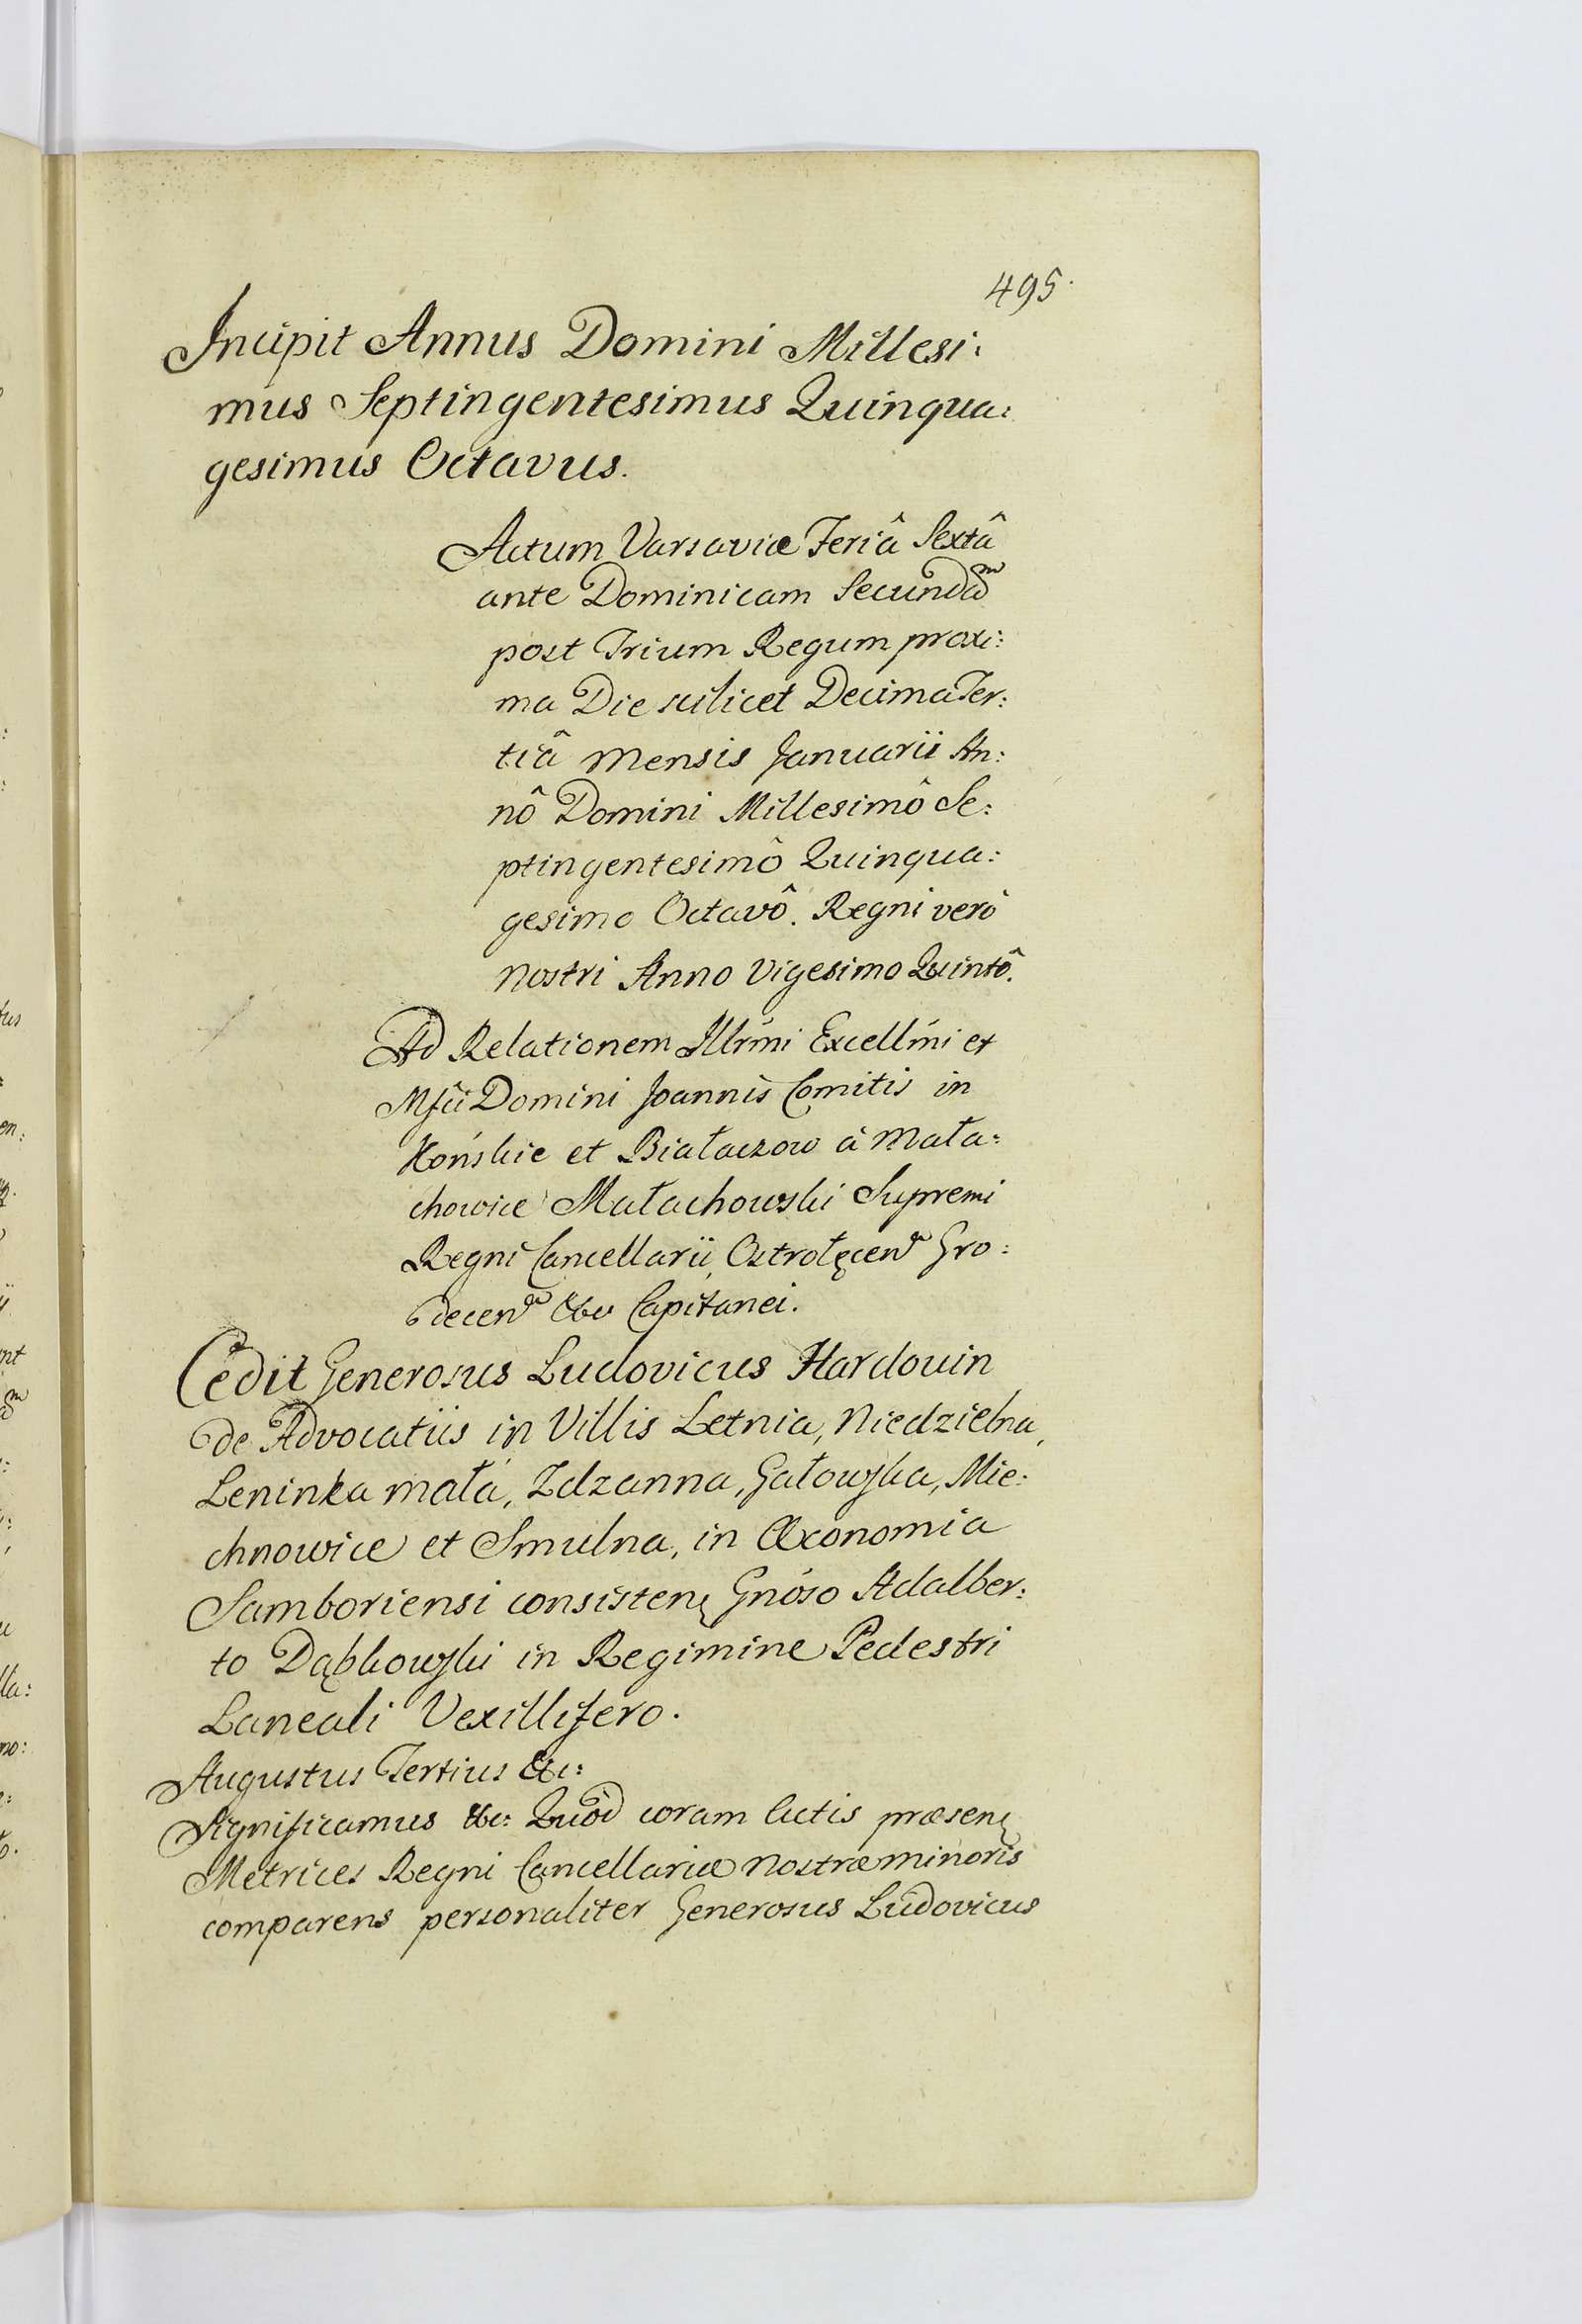 495.
Incipit Annus Domini Millesi:
mus Septingentesimus Quinqua:
gesimus Octavus.
Actum Varsaviæ Feriâ Sextâ
ante Dominicam Secundaᵐ
post Trium Regum proxi:
ma Die scilicet Decima Ter:
tiâ Mensis Januarii An:
nô Domini Millesimô Se:
ptingentesimô Quinqua:
gesimo Octavô. Regni verò
nostri Anno Vigesimo Quintô.
Ad Relationem Illrmi Excellmi et
Mfci Domini Joannis Comitis in
Końskie et Białaczow à Mała:
chowice Małachowski Supremi
Regni Cancellarii, Ostrołęcen Gro:
decen &c Capitanei.
Cedit Generosus Ludovicus Hardouin
de Advocatiis in Villis Letnia, Niedzielna,
Leninka mała, Zdzanna, Gałowska, Mie:
chnowice et Smulna, in Œconomia
Samboriensi consisten Gnoso Adalber:
to Dąbkowski in Regimine Pedestri
Laneali Vexillifero.
Augustus Tertius &c:
Significamus &c: Quòd coram Actis præsen
Metrices Regni Cancellariæ nostræ minoris
comparens personaliter Generosus Ludovicus